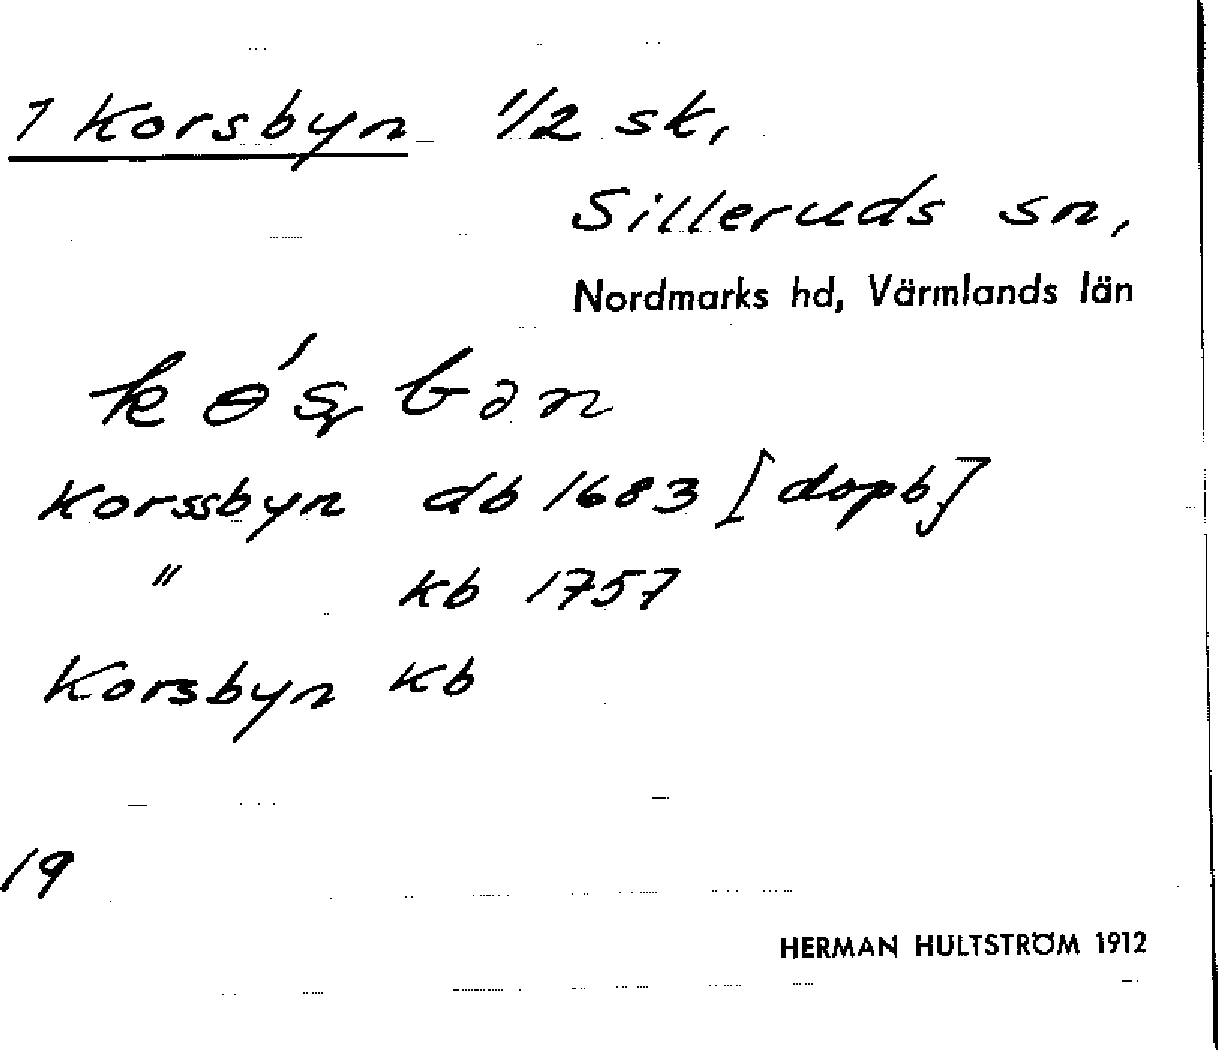 1 Korsbyn 1/2 sk,
Silleruds sn,
Nordmarks hd, Värmlands län
kɵ́ʂbən
Korssbyn db 1683 [dopb]
" kb 1757
Korsbyn kb
19
HERMAN HULTSTRÖM 1912